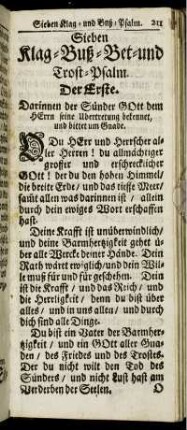 Sieben Klag- und Buß-Psalm. 211
Sieben
Klag-Buß-Bet-und
Trost-Psalm.
Der Erste.
Darinnen der Sünder GOtt dem
HErrn seine Ubertretung bekennet,
und bittet um Gnade.
DU HErr und Herrscher al-
ler Herren! du allmächtiger
grosser und erschrecklicher
GOtt! der du den hohen Himmel/
die breite Erde/ und das tieffe Meer/
samt allen was darinnen ist/ allein
durch dein ewiges Wort erschaffen
hast.
Deine Krafft ist unüberwindlich/
und deine Barmhertzigkeit gehet ü-
ber alle Wercke deiner Hände. Dein
Rath währt ewiglich/und dein Wil-
le muß für und für geschehen. Dein
ist die Krafft/ und das Reich/ und
die Herrligkeit/ denn du bist über
alles/ und in uns allen/ und durch
dich sind alle Dinge.
Du bist ein Vater der Barmher-
tzigkeit/ und ein GOtt aller Gna-
den/ des Friedes und des Trostes.
Der du nicht wilt den Tod des
Sünders/ und nicht Lust hast am
Verderben der Seelen. O